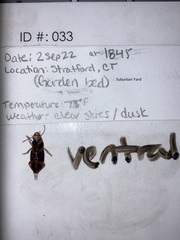 ID #: 033
Date: 2Sep22 at 1845
Location: Stratford, CT
(Garden bed) - Suburban Yard
Temperature: 78°F
Weather: clear skies / dusk
ventral